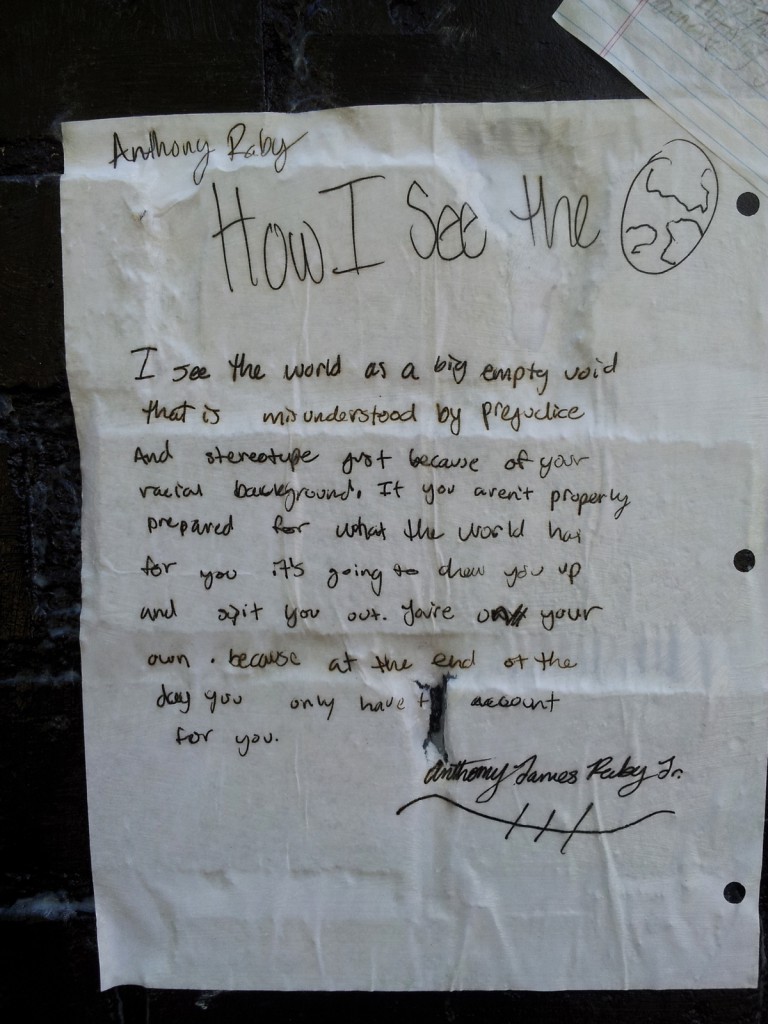 Anthony Raby
How I See the
I see the world as a big empty void
that is misunderstood by prejudice
And stereotype just because of your
racial background. If you aren't properly
prepared for what the world has
for you it's going to chew you up
and spit you out. You're on your
own. because at the end of the
day you only have t account
for you.
Anthony James Raby Jr.